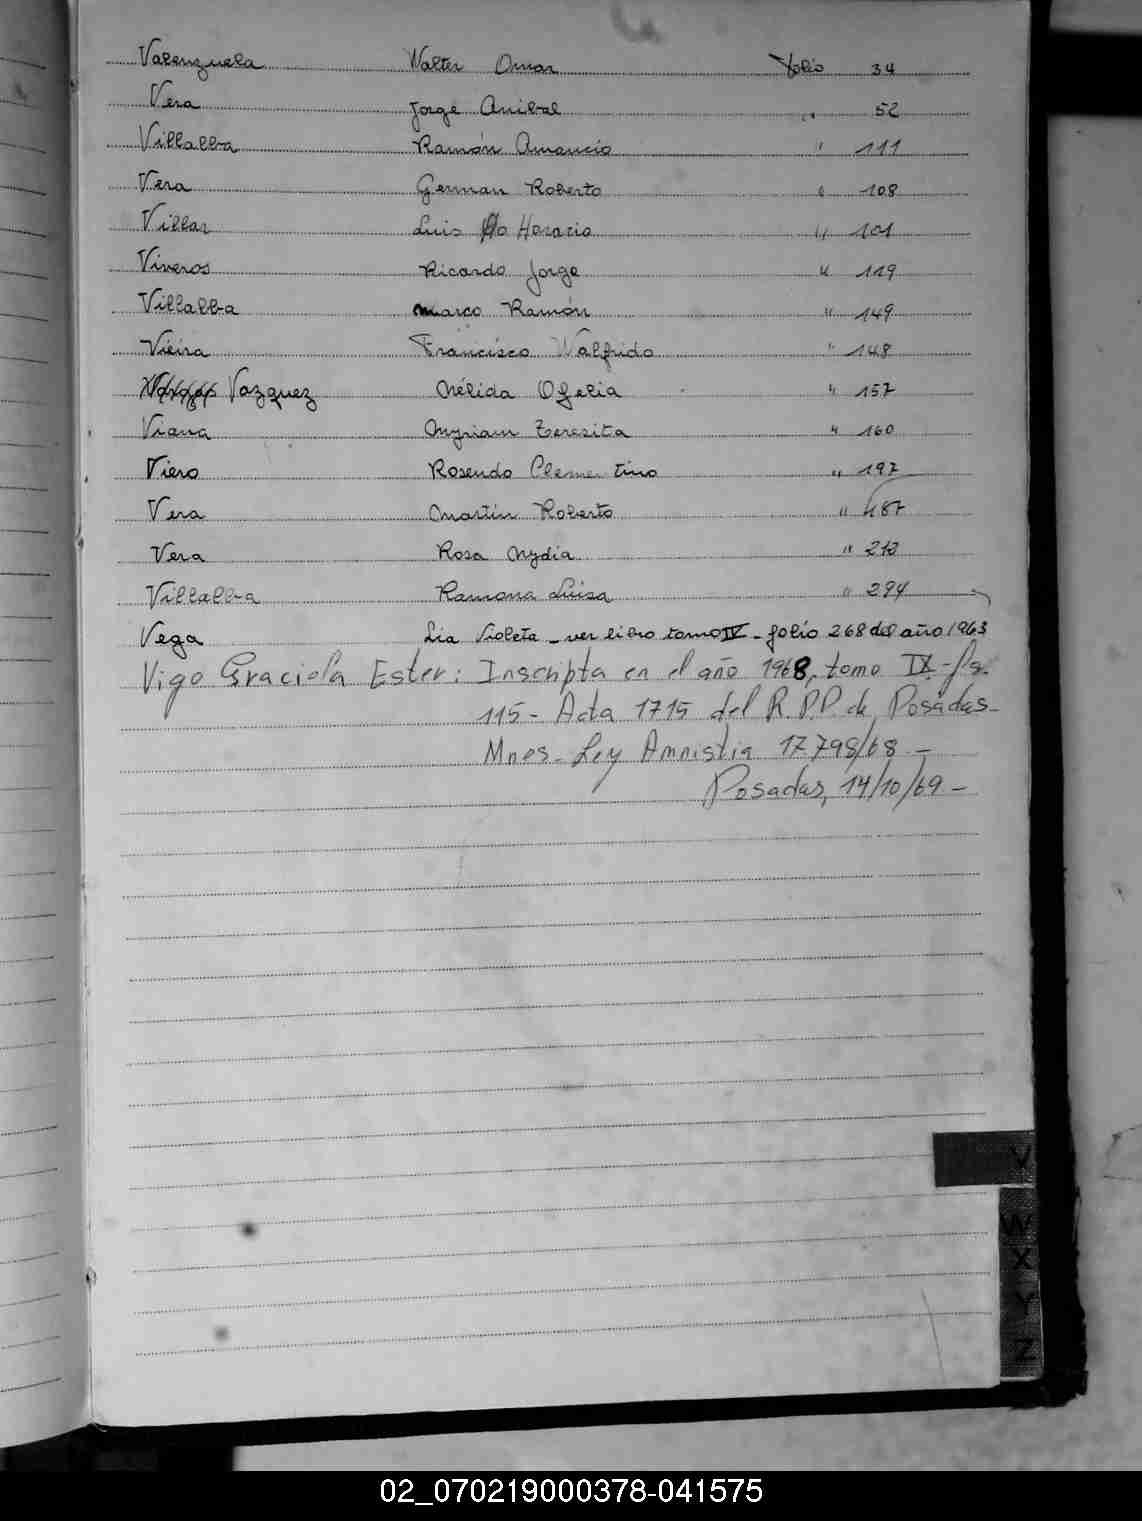 Valenzuela Walter Omar folio 34
Vera Jorge Anibal " 52
Villalba Ramón Amancio " 111
Vera German Roberto " 108
Villar Luis Horacio " 101
Viveros Ricardo Jorge " 119
Villalba Marco Ramón " 149
Vieira Francisco Walfrido " 148
Vazquez Nélida Ofelia " 157
Viana Myriam Teresita " 160
Viero Rosendo Clementino " 197
Vera Martin Roberto " 187
Vera Rosa Nydia "
Villalba Ramona Luisa " 294
Vega Lia Violeta - ver libro tomo IV - folio 268 del año 1963
Vigo Graciela Ester: Inscripta en el año 1968, tomo IX - fs.
115 - Acta 1715 del R.P.P. de Posadas -
Mnes - Ley Amnistia 17.798/68 -
Posadas, 14/10/69 -
V
W
X
Y
Z
02_070219000378-041575